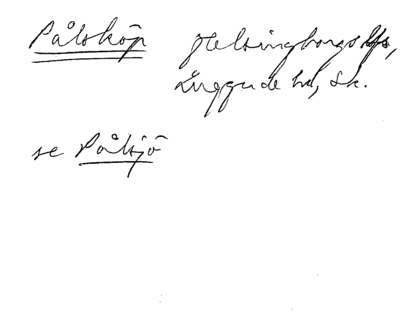 Pålsköp Helsingborgs lfs,
Luggude hd, Sk.
se Pålsjö